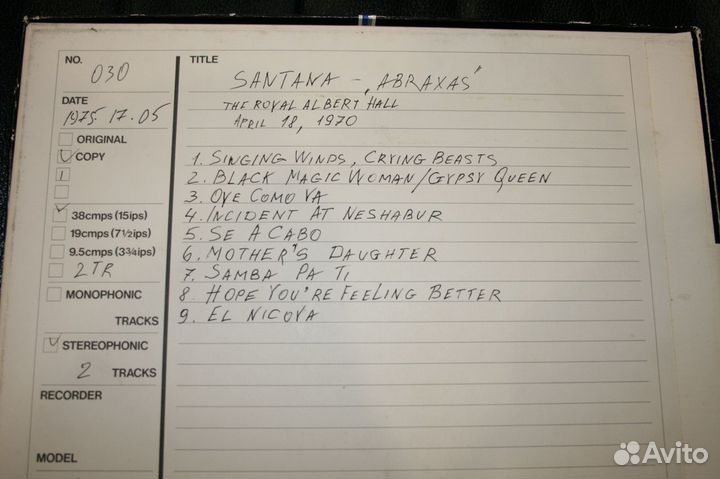 NO.
030
DATE
1975.17.05
ORIGINAL
COPY
1
38cmps (15ips)
19cmps (7½ips)
9.5cmps (3¾ips)
2TR
MONOPHONIC
TRACKS
STEREOPHONIC
2 TRACKS
RECORDER
MODEL
TITLE
SANTANA – „ABRAXAS"
THE ROYAL ALBERT HALL
APRIL 18, 1970
1. SINGING WINDS, CRYING BEASTS
2. BLACK MAGIC WOMAN/GYPSY QUEEN
3. OYE COMO VA
4. INCIDENT AT NESHABUR
5. SE A CABO
6. MOTHER'S DAUGHTER
7. SAMBA PA TI
8. HOPE YOU'RE FEELING BETTER
9. EL NICOYA
Avito